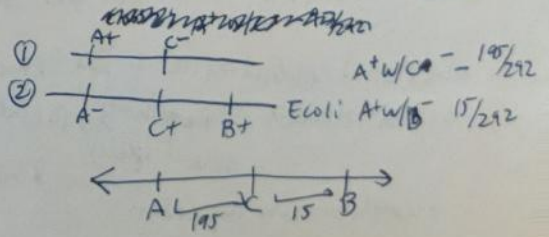 A+ C-
① A+ W/ C- - 195/292
② A- C+ B+ Ecoli A+ W/ B- 15/292
A C B
195 15